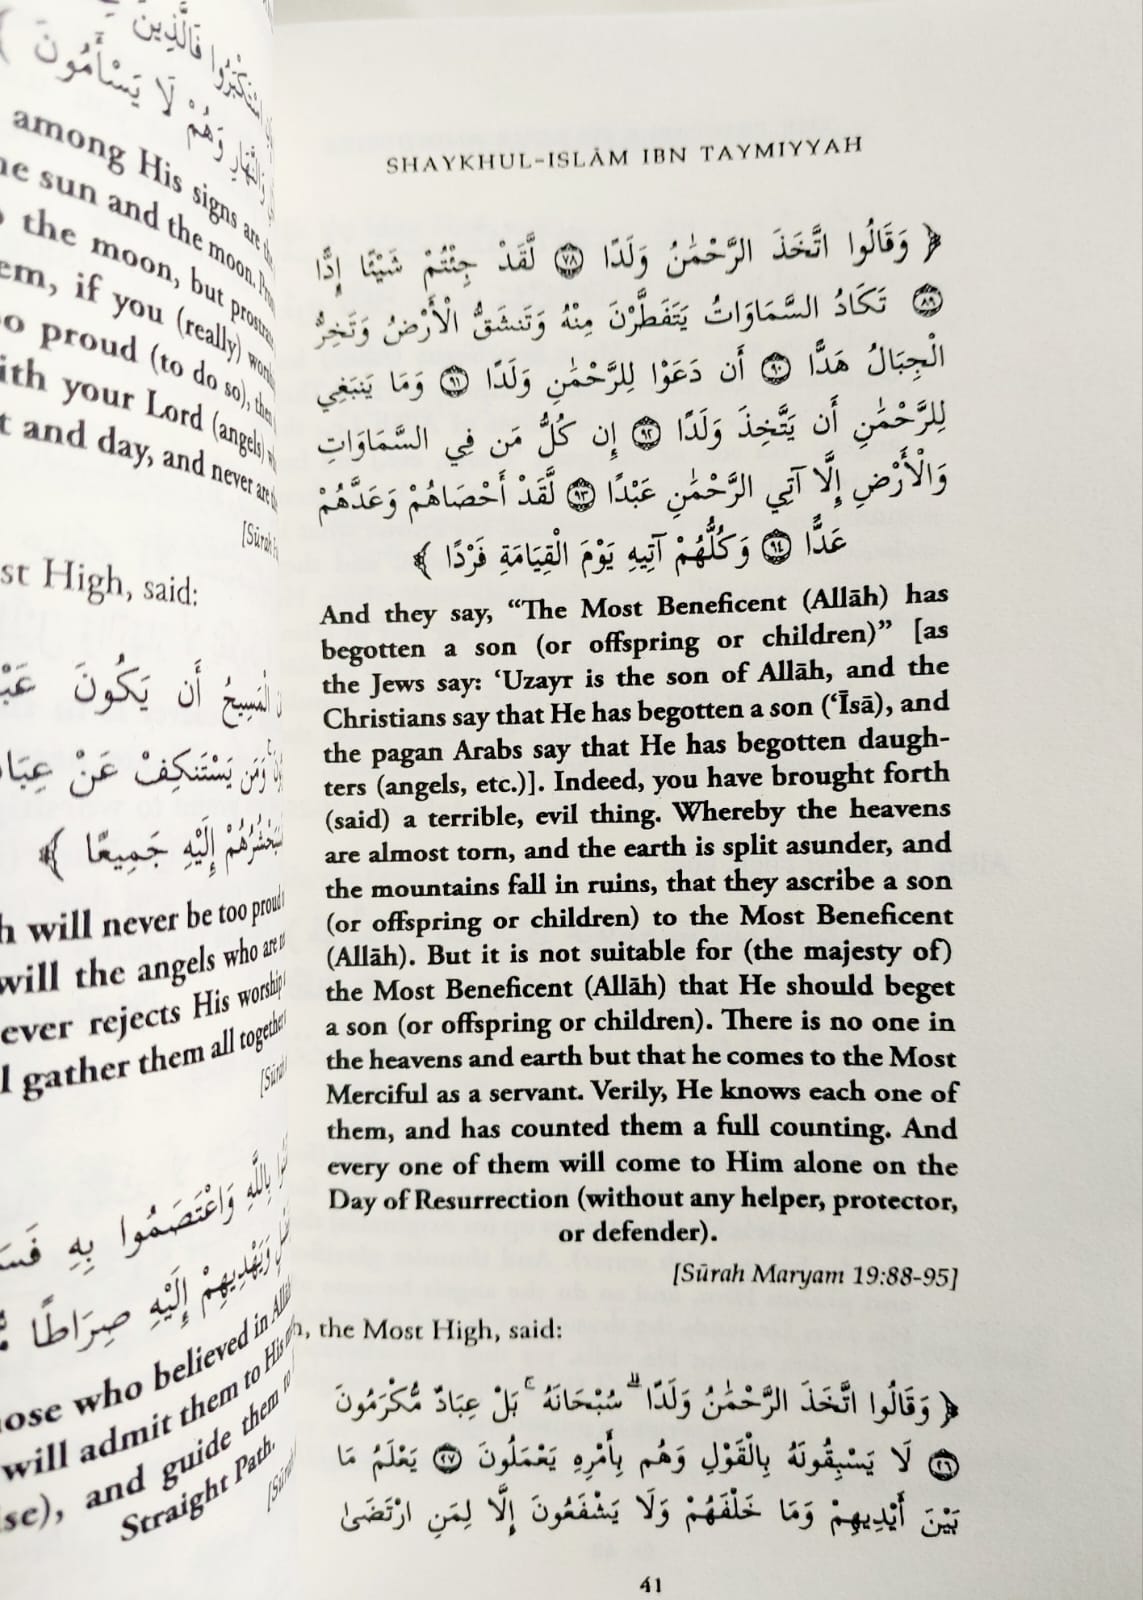 اسْتَكْبَرُوا فَالَّذِينَ
وَالنَّهَارِ وَهُمْ لَا يَسْأَمُونَ ﴾
among His signs are
sun and the moon.
the moon, but
if you (really)
proud (to do so),
your Lord (angels)
and day, and never are
[Sūrah
High, said:
الْمَسِيحُ أَن يَكُونَ
وَمَن يَسْتَنكِفْ عَنْ
فَسَيَحْشُرُهُمْ إِلَيْهِ جَمِيعًا ﴾
will never be too proud
will the angels who are
rejects His worship
gather them all together
بِاللَّهِ وَاعْتَصَمُوا بِهِ
وَيَهْدِيهِمْ إِلَيْهِ صِرَاطًا
who believed in Allāh
will admit them to His
and guide them to
Straight Path.
SHAYKHUL-ISLĀM IBN TAYMIYYAH
﴿ وَقَالُوا اتَّخَذَ الرَّحْمَٰنُ وَلَدًا ﴿٧٨﴾ لَّقَدْ جِئْتُمْ شَيْئًا إِدًّا
﴿٨٩﴾ تَكَادُ السَّمَاوَاتُ يَتَفَطَّرْنَ مِنْهُ وَتَنشَقُّ الْأَرْضُ وَتَخِرُّ
الْجِبَالُ هَدًّا ﴿٩٠﴾ أَن دَعَوْا لِلرَّحْمَٰنِ وَلَدًا ﴿٩١﴾ وَمَا يَنبَغِي
لِلرَّحْمَٰنِ أَن يَتَّخِذَ وَلَدًا ﴿٩٢﴾ إِن كُلُّ مَن فِي السَّمَاوَاتِ
وَالْأَرْضِ إِلَّا آتِي الرَّحْمَٰنِ عَبْدًا ﴿٩٣﴾ لَّقَدْ أَحْصَاهُمْ وَعَدَّهُمْ
عَدًّا ﴿٩٤﴾ وَكُلُّهُمْ آتِيهِ يَوْمَ الْقِيَامَةِ فَرْدًا ﴾
And they say, “The Most Beneficent (Allāh) has
begotten a son (or offspring or children)” [as
the Jews say: ‘Uzayr is the son of Allāh, and the
Christians say that He has begotten a son (‘Īsā), and
the pagan Arabs say that He has begotten daugh-
ters (angels, etc.)]. Indeed, you have brought forth
(said) a terrible, evil thing. Whereby the heavens
are almost torn, and the earth is split asunder, and
the mountains fall in ruins, that they ascribe a son
(or offspring or children) to the Most Beneficent
(Allāh). But it is not suitable for (the majesty of)
the Most Beneficent (Allāh) that He should beget
a son (or offspring or children). There is no one in
the heavens and earth but that he comes to the Most
Merciful as a servant. Verily, He knows each one of
them, and has counted them a full counting. And
every one of them will come to Him alone on the
Day of Resurrection (without any helper, protector,
or defender).
[Sūrah Maryam 19:88-95]
the Most High, said:
﴿ وَقَالُوا اتَّخَذَ الرَّحْمَٰنُ وَلَدًا ۗ سُبْحَانَهُ ۚ بَلْ عِبَادٌ مُّكْرَمُونَ
﴿٢٦﴾ لَا يَسْبِقُونَهُ بِالْقَوْلِ وَهُم بِأَمْرِهِ يَعْمَلُونَ ﴿٢٧﴾ يَعْلَمُ مَا
بَيْنَ أَيْدِيهِمْ وَمَا خَلْفَهُمْ وَلَا يَشْفَعُونَ إِلَّا لِمَنِ ارْتَضَىٰ
41